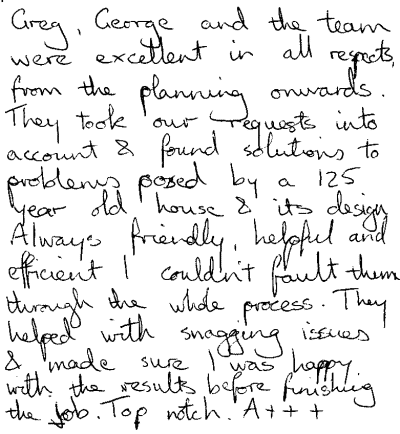 Greg, George and the team
were excellent in all respects,
from the planning onwards.
They took our requests into
account & found solutions to
problems posed by a 125
year old house & its design
Always friendly, helpful and
efficient I couldn't fault them
through the whole process. They
helped with snagging issues
& made sure I was happy
with the results before finishing
the job. Top notch. A+++